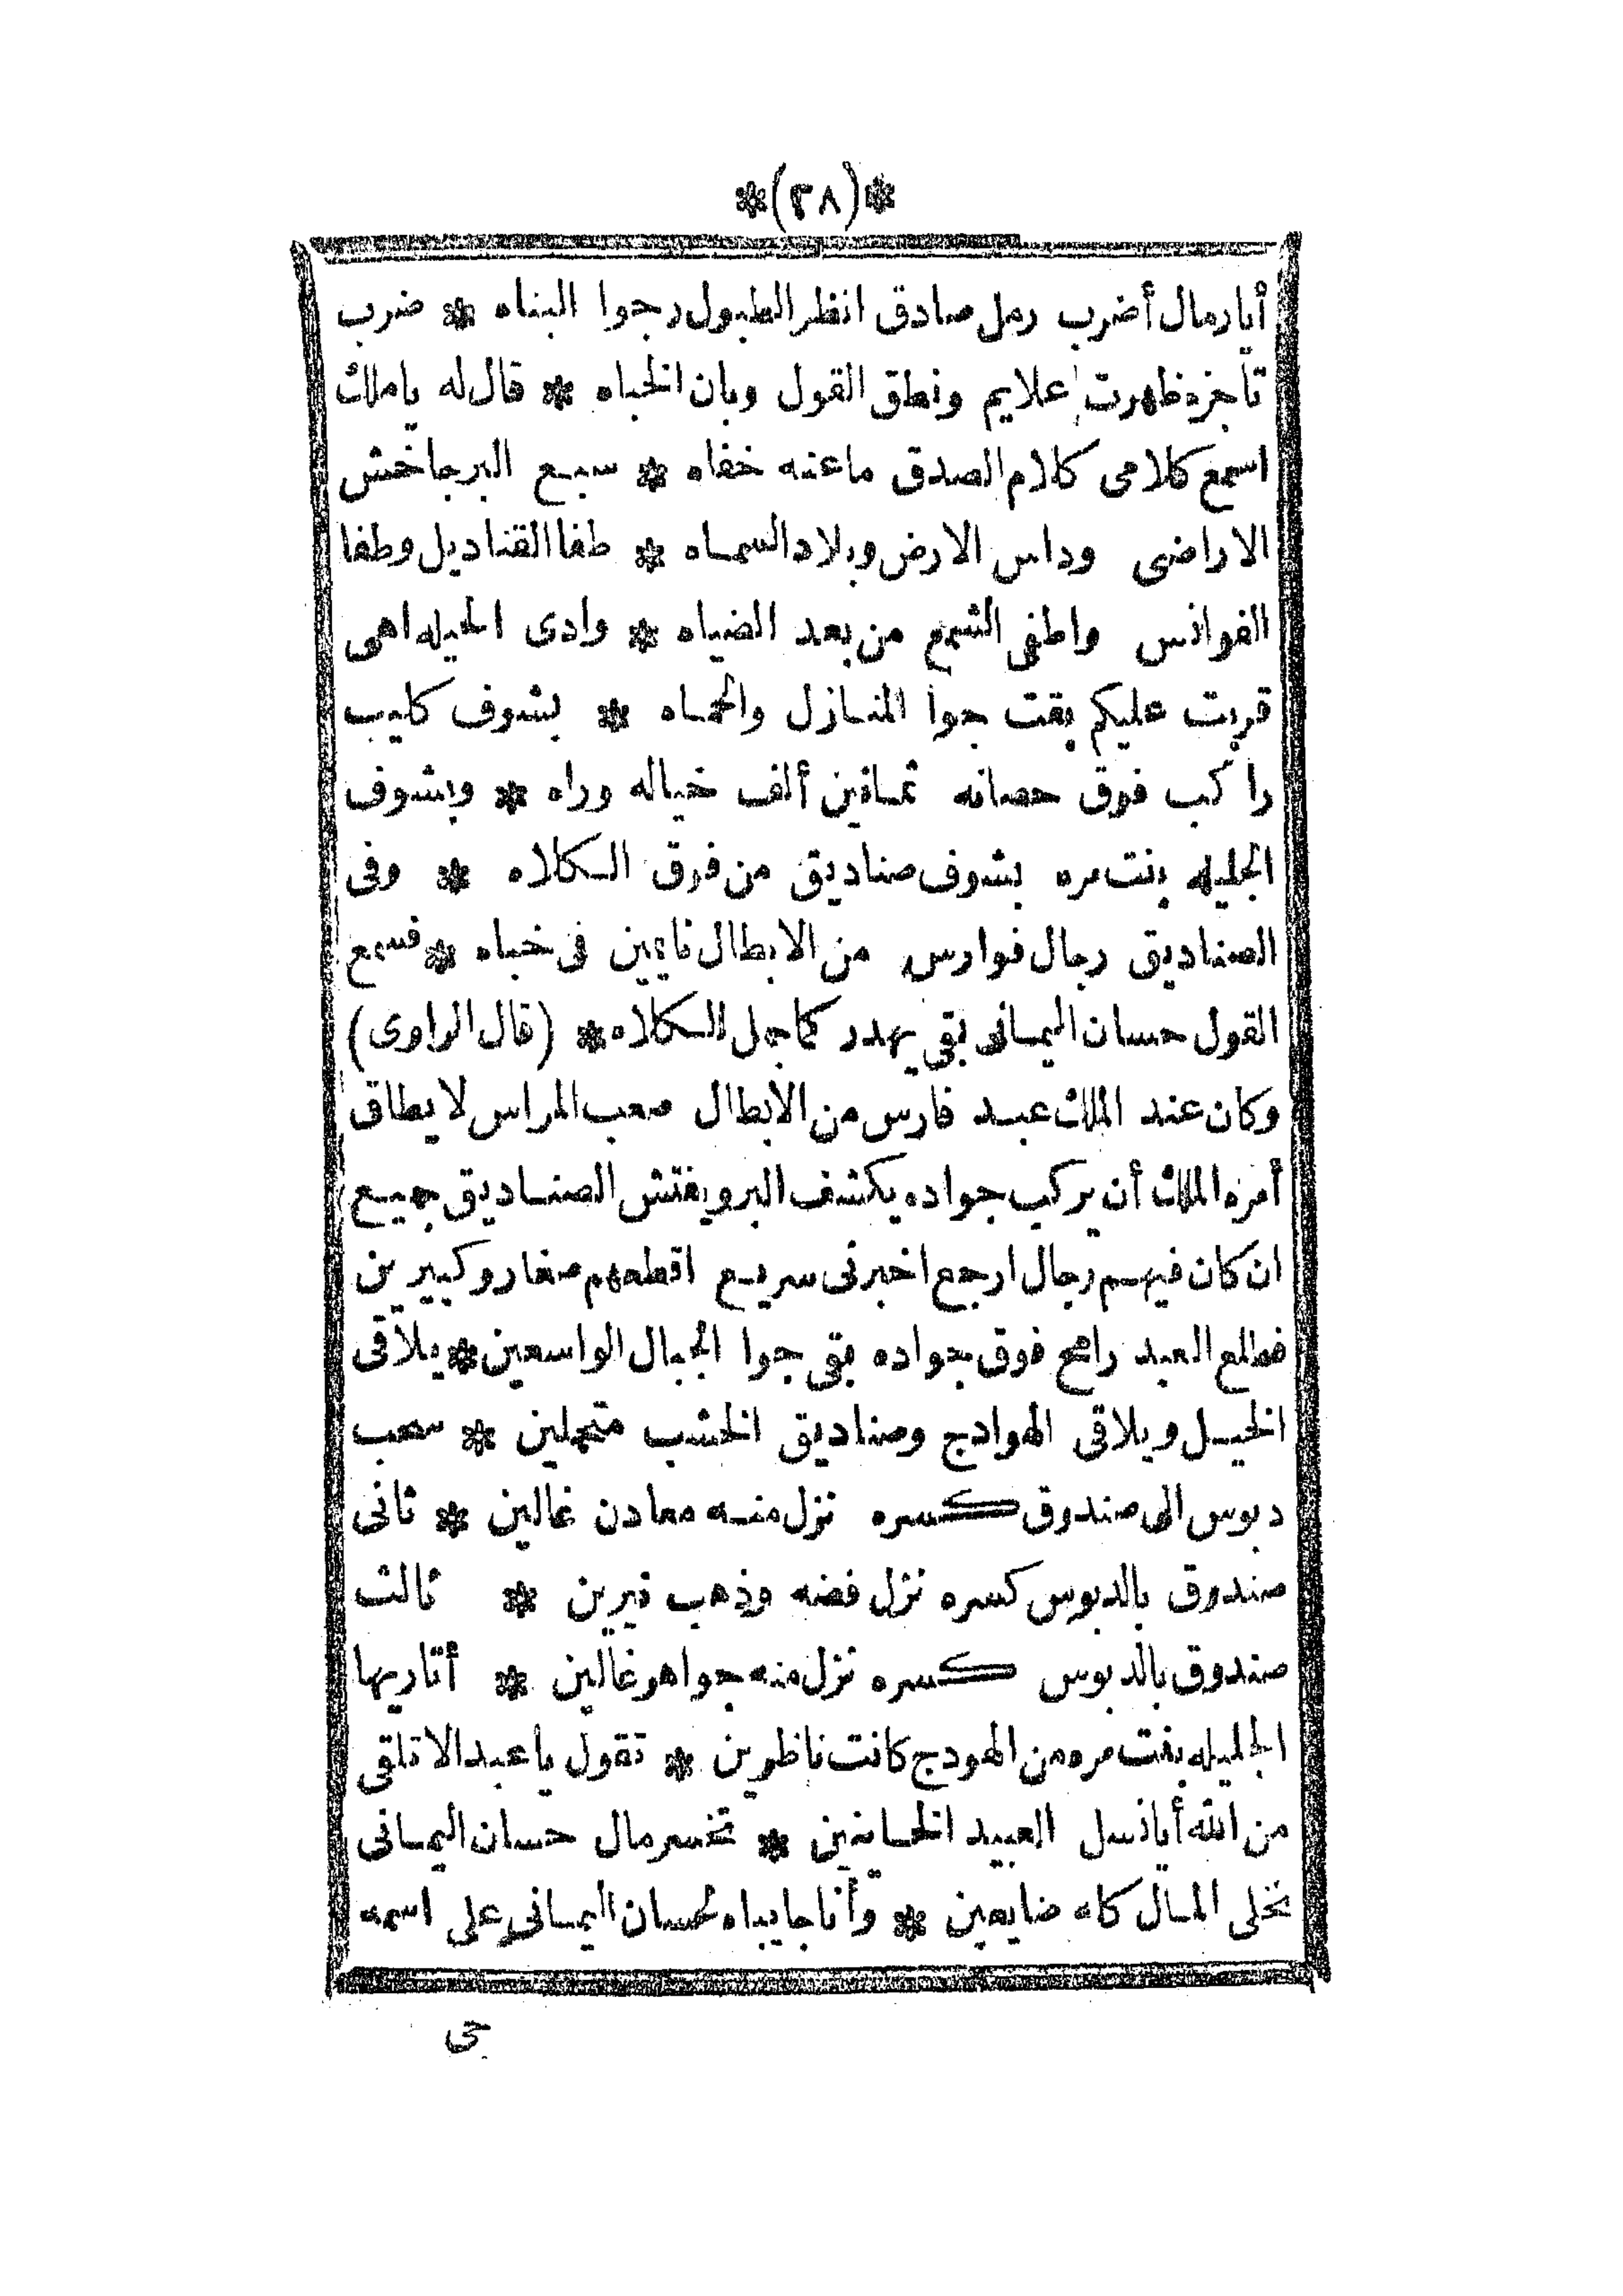 *(٢٨)*
أيا رمال أضرب رمل صادق انظر الطبول رجوا البناه * ضرب
تاخره ظهرت اعلايم ونطق القول وبان الخباه * قال له يا ملك
اسمع كلامى كلام الصدق ماعنه خفاه * سبع البرجا خش
الاراضى وداس الارض وبلاد السماه * طفا القناديل وطفا
الفوانس واطفى الشمع من بعد الضياه * وادى الحيله اهى
قربت عليكم بقت جوا المنازل والحماه * بشوف كليب
راكب فوق حصانه ثمانين ألف خياله وراه * وبشوف
الجليله بنت مره بشوف صناديق من فوق الكلاه * وفى
الصناديق رجال فوارس من الابطال نايمين فى خباه * فسمع
القول حسان اليمانى بقى يهدر كما جمل الكلاه * (قال الراوى)
وكان عند الملك عبد فارس من الابطال صعب المراس لا يطاق
أمره الملك أن يركب جواده يكشف البر ويفتش الصناديق جميع
ان كان فيهم رجال ارجع اخبرنى سريع اقطعهم صغار وكبيرين
فطلع العبد رامح فوق جواده بقى جوا الجبال الواسعين * يلاقى
الخيل ويلاقى الهوادج وصناديق الخشب متحملين * سحب
دبوس الى صندوق كسره نزل منه معادن غالين * ثانى
صندوق بالدبوس كسره نزل فضه وذهب نيرين * ثالث
صندوق بالدبوس كسره نزل منه جواهر غالين * أتاريها
الجليله بنت مره من الهودج كانت ناظرين * تقول يا عبد الا تلقى
من الله أيا نسل العبيد الخسايين * تخسر مال حسان اليمانى
تخلى المال كله ضايعين * وأنا جايباه لحسان اليمانى على اسمه
حى